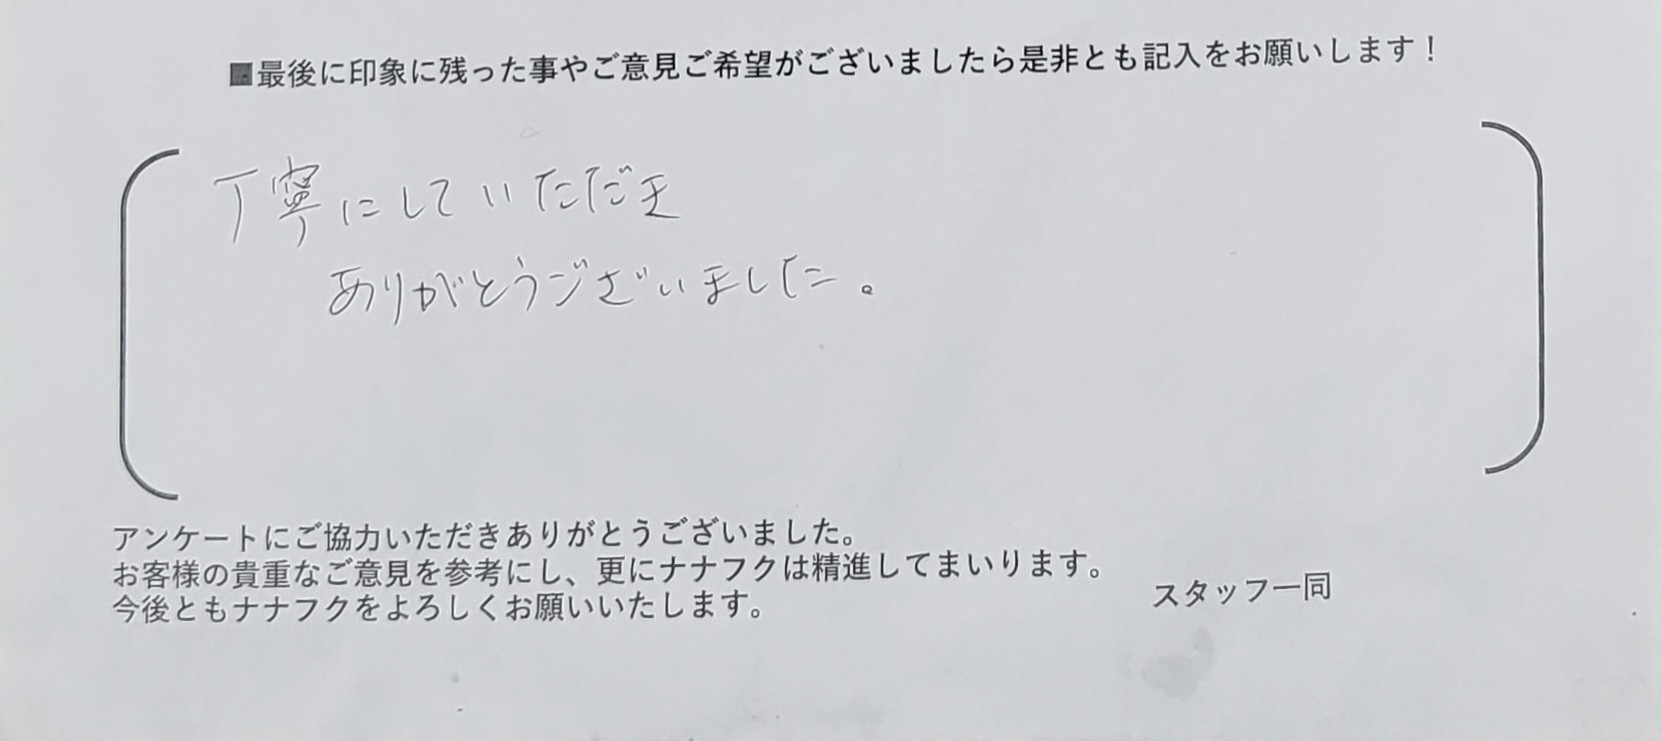 ■最後に印象に残った事やご意見ご希望がございましたら是非とも記入をお願いします！
丁寧にしていただき
ありがとうございました。
アンケートにご協力いただきありがとうございました。
お客様の貴重なご意見を参考にし、更にナナフクは精進してまいります。
今後ともナナフクをよろしくお願いいたします。
スタッフ一同